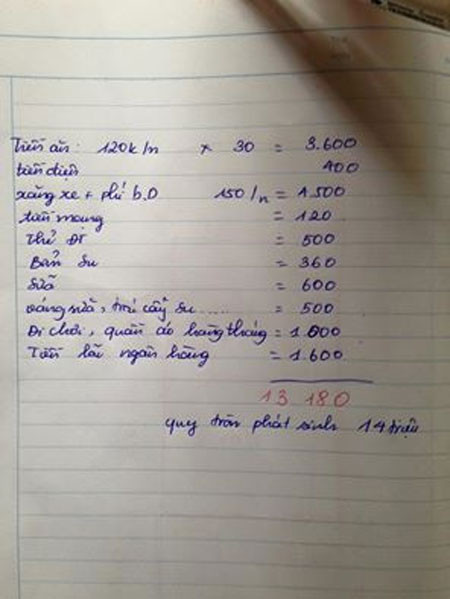 Tiền ăn: 120k/n × 30 = 3.600
tiền điện 400
xăng xe + phí b.D 150/n = 1.500
tiền mạng = 120
= 500
Bản Su = 360
Sữa = 600
váng sữa, trái cây Su..... = 500
Đi chơi, quần áo hàng tháng = 1.000
Tiền lãi ngân hàng = 1.600
13 180
quy tròn phát sinh 14 triệu